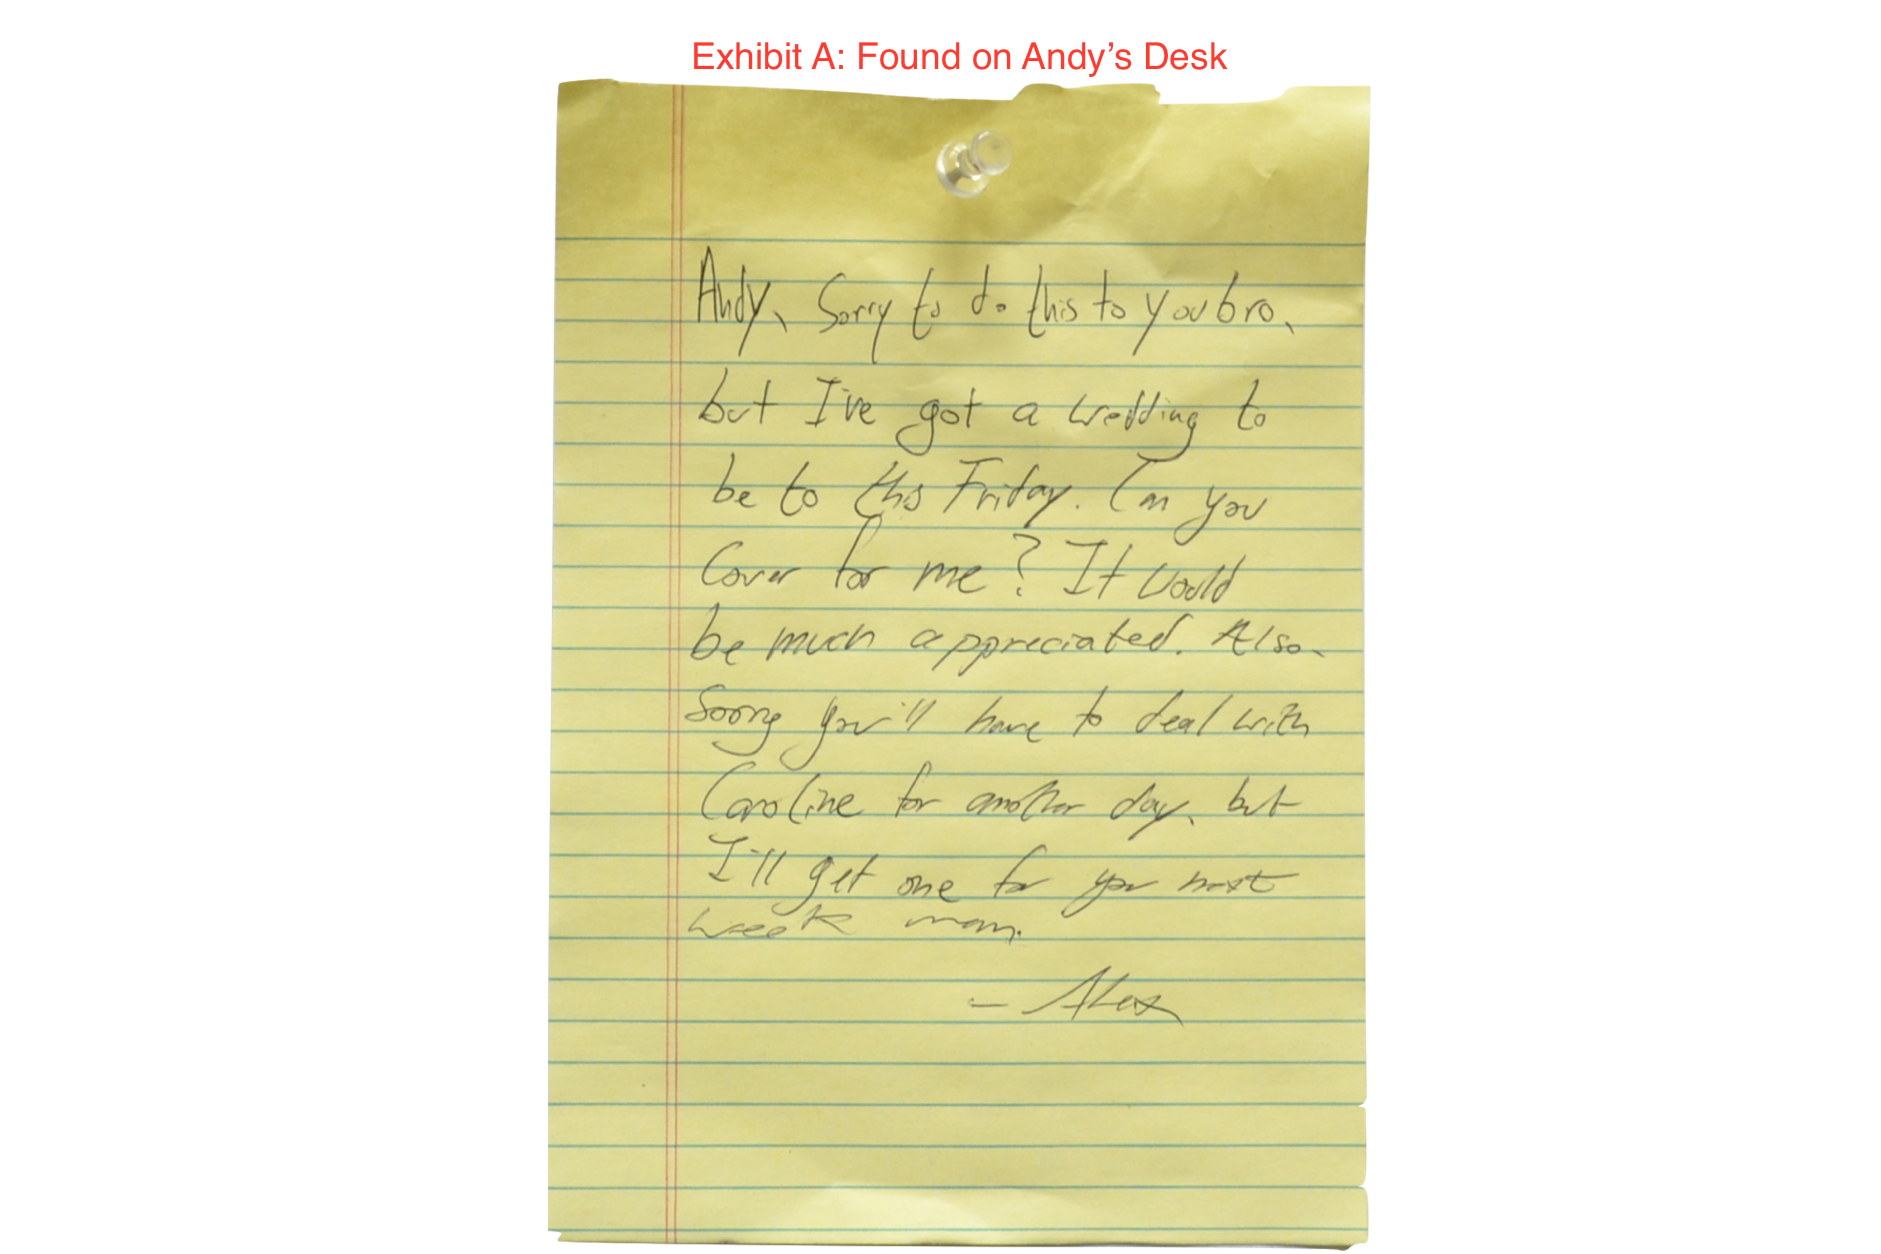 Exhibit A: Found on Andy’s Desk
Andy, Sorry to do this to you bro,
but I've got a wedding to
be to this Friday. Can you
Cover for me? It would
be much appreciated. Also,
Sorry you'll have to deal with
Caroline for another day, but
I'll get one for you next
week man.
– Alex